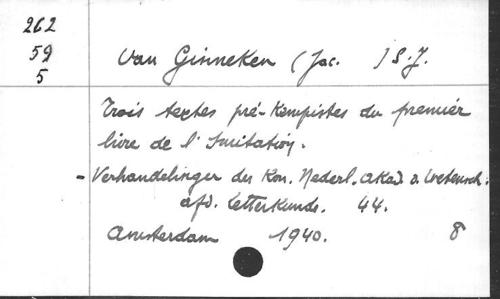 262
59
5
Van Ginneken (Jac. ) S.J.
Trois textes pré-Kempistes du premier
livre de l'Imitation.
- Verhandelingen der Kon. Nederl. Akad. v. Wetensch.
afd. Letterkunde. 44.
Amsterdam 1940. 8